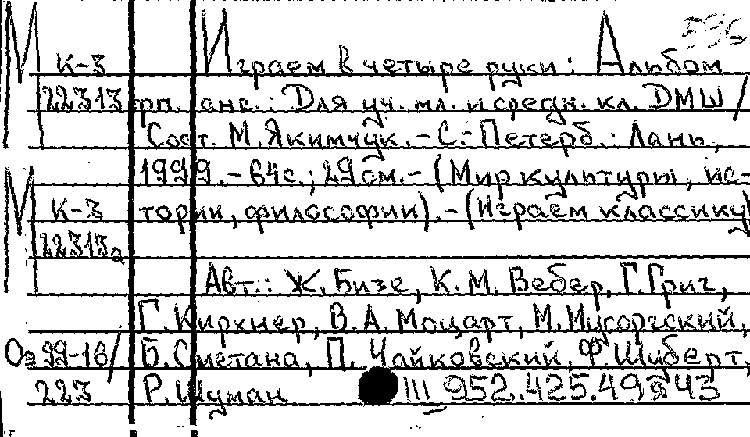 М К-3 Играем в четыре руки: Альбом
22313 фп. анс.: Для уч. мл. и средн. кл. ДМШ /
Сост. М. Якимчук. - С.-Петерб.: Лань,
1999. - 64с.; 29см. - (Мир культуры, ис-
М К-3 тории, философии). - (Играем классику)
22313а
Авт.: Ж. Бизе, К. М. Вебер, Г. Григ,
Г. Кирхнер, В. А. Моцарт, М. Мусоргский,
Оз 99-16/ Б. Сметана, П. Чайковский, Ф. Шуберт,
223 Р. Шуман III 952.425.49